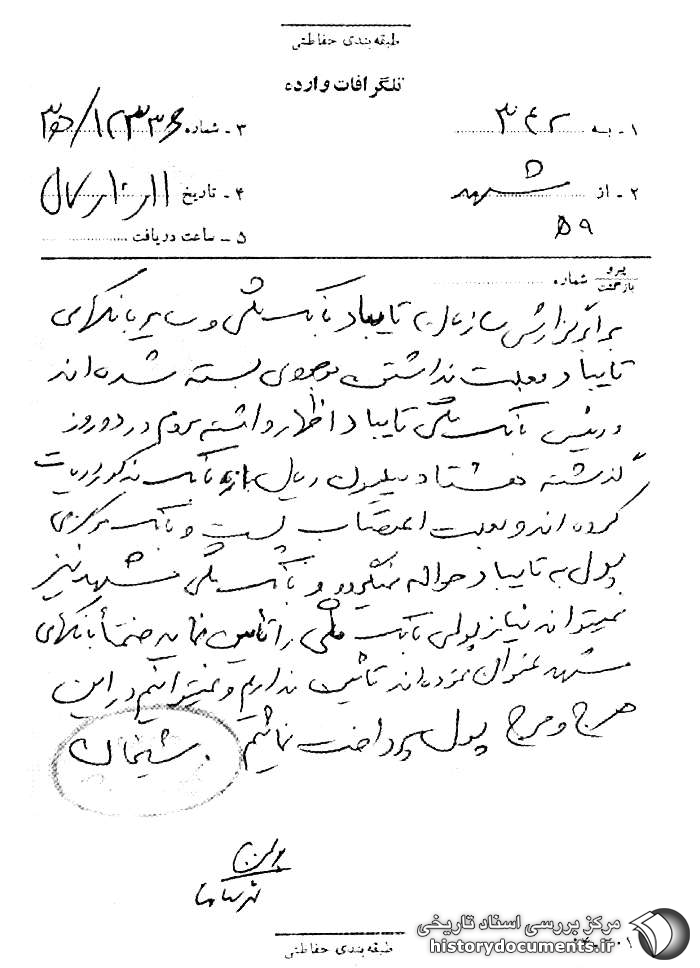 طبقه‌بندی حفاظتی
تلگرافات وارده
۱ـ به ۳۴۲
۳ـ شماره ۱۲۳۳۶/
۲ـ از مشهد
۴ـ تاریخ
۵۹
۵ـ ساعت دریافت
پیرو
بازگشت
شماره
برابر گزارش سازمان تایباد بانک ملی و سایر بانکهای
تایباد بعلت نداشتن موجودی بسته شده اند
و رئیس بانک ملی تایباد اظهار داشته مردم در دو روز
گذشته هشتاد میلیون ریال از بانک مذکور دریافت
کرده اند و بعلت اعتصاب پست و بانک مرکزی
پول به تایباد حواله نمیگردد و بانک ملی مشهد نیز
نمیتواند نیاز پولی بانک ملی را تأمین نماید ضمناً بانکهای
مشهد عنوان نموده اند تأمین نداریم و نمیتوانیم در این
هرج و مرج پول پرداخت نمائیم. شیخان
طبقه‌بندی حفاظتی
مرکز بررسی اسناد تاریخی
historydocuments.ir